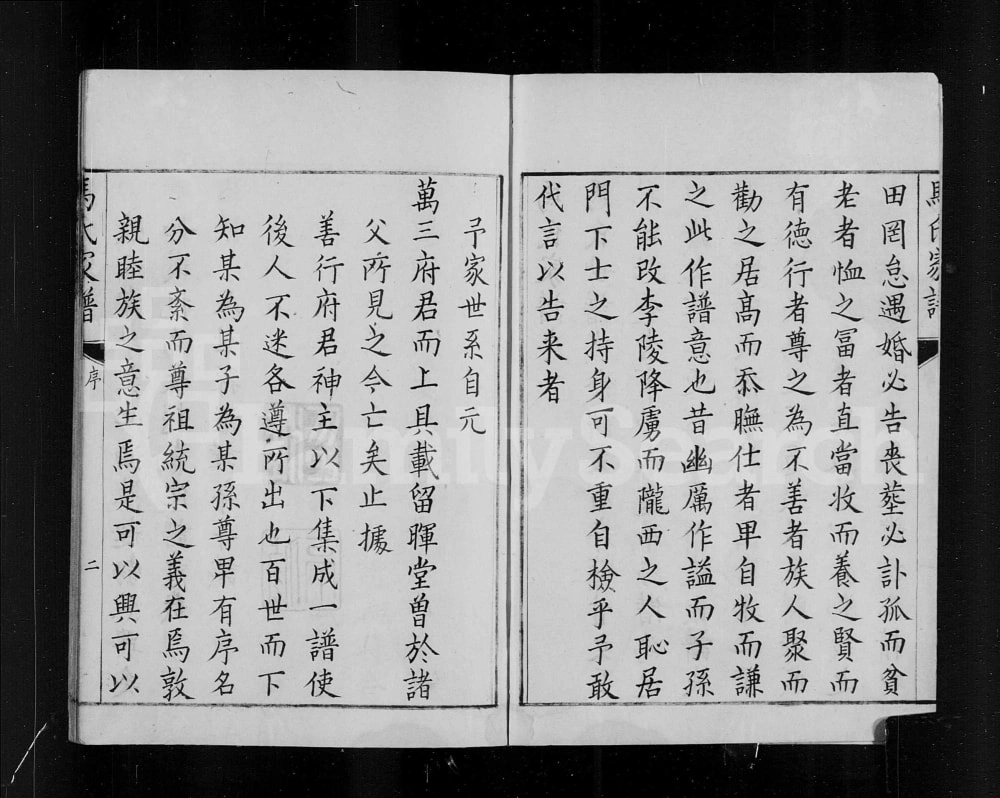 馬氏家譜
田罔怠遇婚必告喪塟必訃孤而貧
老者恤之冨者直當收而養之賢而
有德行者尊之為不善者族人聚而
勸之居髙而忝瞴仕者卑自牧而謙
之此作譜意也昔幽厲作謚而子孫
不能改李陵降虜而隴西之人恥居
門下士之持身可不重自檢乎予敢
代言以告来者
予家世系自元
萬三府君而上具載留暉堂曾於諸
父所見之今亡矣止據
善行府君神主以下集成一譜使
後人不迷各遵所出也百世而下
知某為某子為某孫尊卑有序名
分不紊而尊祖統宗之義在焉敦
親睦族之意生焉是可以興可以
馬氏家譜
序
二
FamilySearch